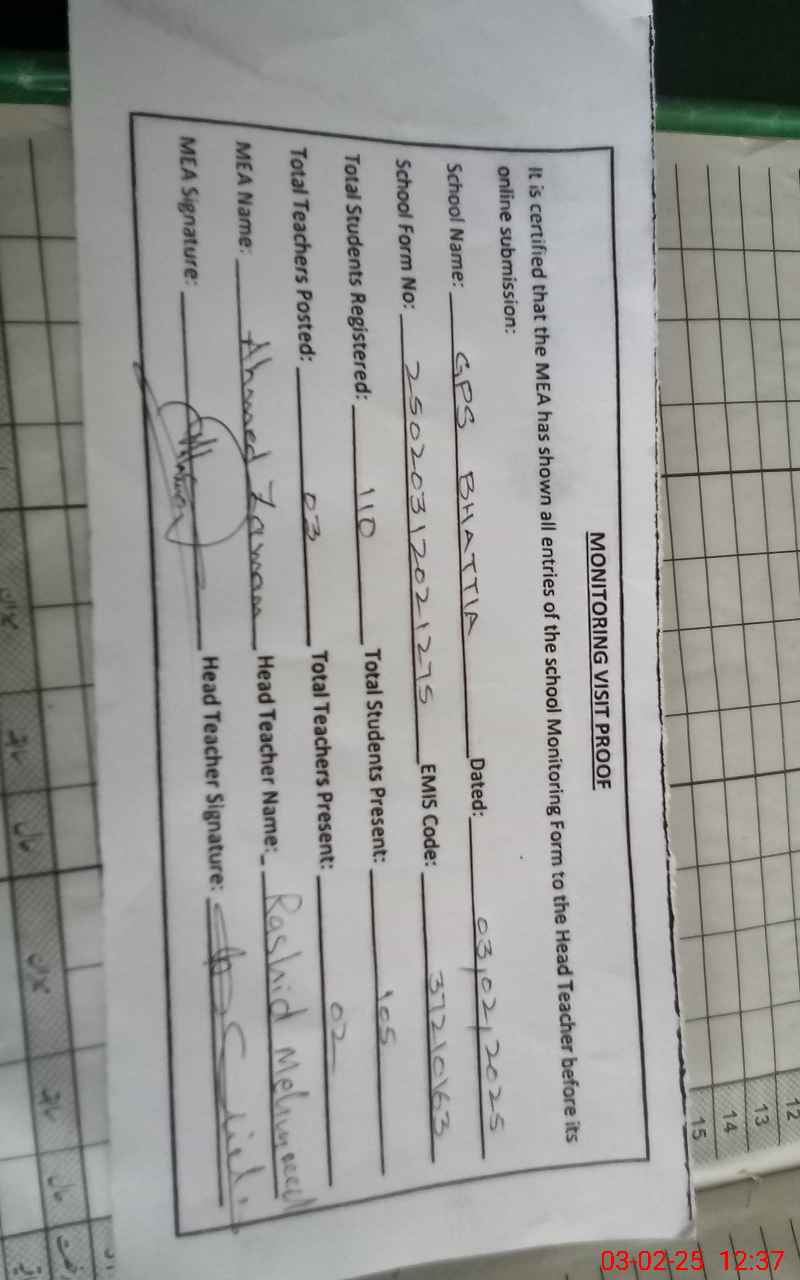 MONITORING VISIT PROOF
It is certified that the MEA has shown all entries of the school Monitoring Form to the Head Teacher before its
online submission:
School Name: GPS BHATTIA Dated: 03,02,2025
School Form No: 25020312021275 EMIS Code: 37210163
Total Students Registered: 110 Total Students Present: 105
Total Teachers Posted: 03 Total Teachers Present: 02
MEA Name: Ahmed Zaman Head Teacher Name: Rashid Mehmood
MEA Signature: Head Teacher Signature:
12
13
14
15
03-02-25 12:37